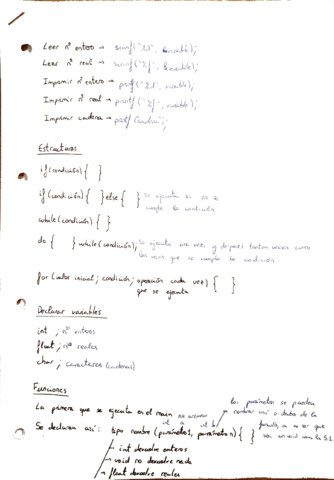 Leer nº entero → scanf("%d", &variable);
Leer nº real → scanf("%f", &variable);
Imprimir nº entero → printf("%d", variable);
Imprimir nº real → printf("%f", variable);
Imprimir cadena → printf("cadena");
Estructuras
if (condición) { }
if (condición) { } else { } Se ejecuta si no se
cumple la condición
while (condición) { }
do { } while (condición); Se ejecuta una vez y después tantas veces como
las veces que se cumpla la condición
for (valor inicial; condición; operación cada vez) { }
que se ejecuta
Declarar variables
int ; nº enteros
float ; nº reales
char ; caracteres (cadenas)
Funciones
La primera que se ejecuta es el main
los parámetros se pueden
nombrar así o dentro de la
Se declaran así: tipo nombre (parámetro1, parámetro n) { }
int devuelve enteros
void no devuelve nada
float devuelve reales